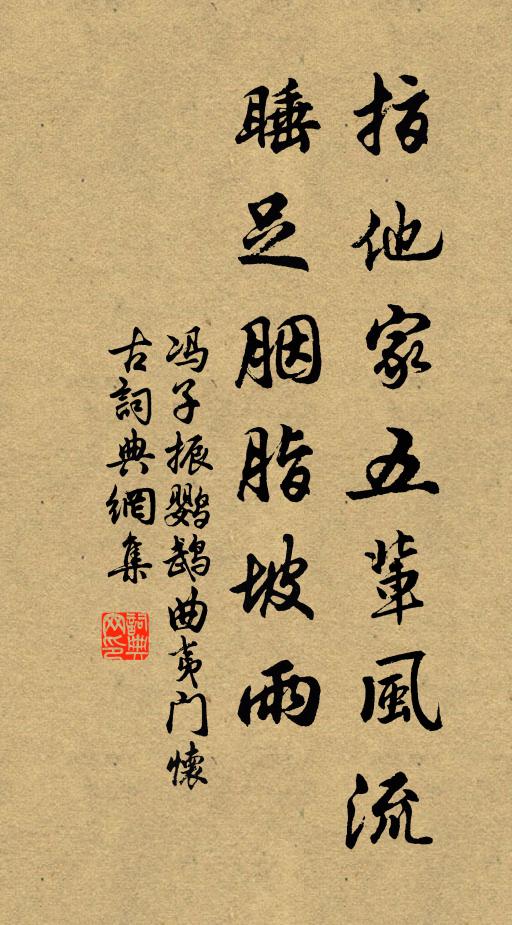 指他家五輩風流
睡足胭脂坡雨
冯子振鹦鵡曲夷门懷
古詞典網集
詞典網印